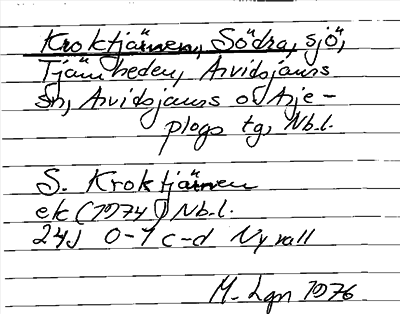 Kroktjärnen, Södra, sjö,
Tjärnheden, Arvidsjaurs
sn, Arvidsjaurs o Arje-
plogs tg, Nb.l.
S. Kroktjärnen
ek (1974) Nb.l.
24J 0-1 c-d Nyvall
M. Lgn 1976